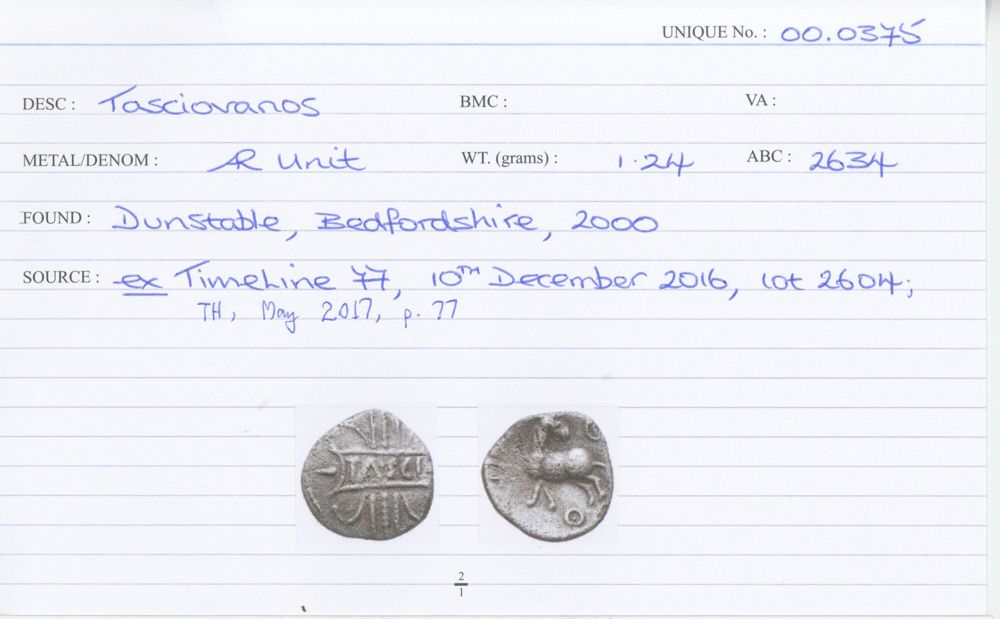 UNIQUE No. : 00.0375
DESC : Tasciovanos BMC : VA :
METAL/DENOM : AR Unit WT. (grams) : 1.24 ABC : 2634
FOUND : Dunstable, Bedfordshire, 2000
SOURCE : ex TimeLine 77, 10TH December 2016, lot 2604;
TH, May 2017, p. 77
TASCI
2
1